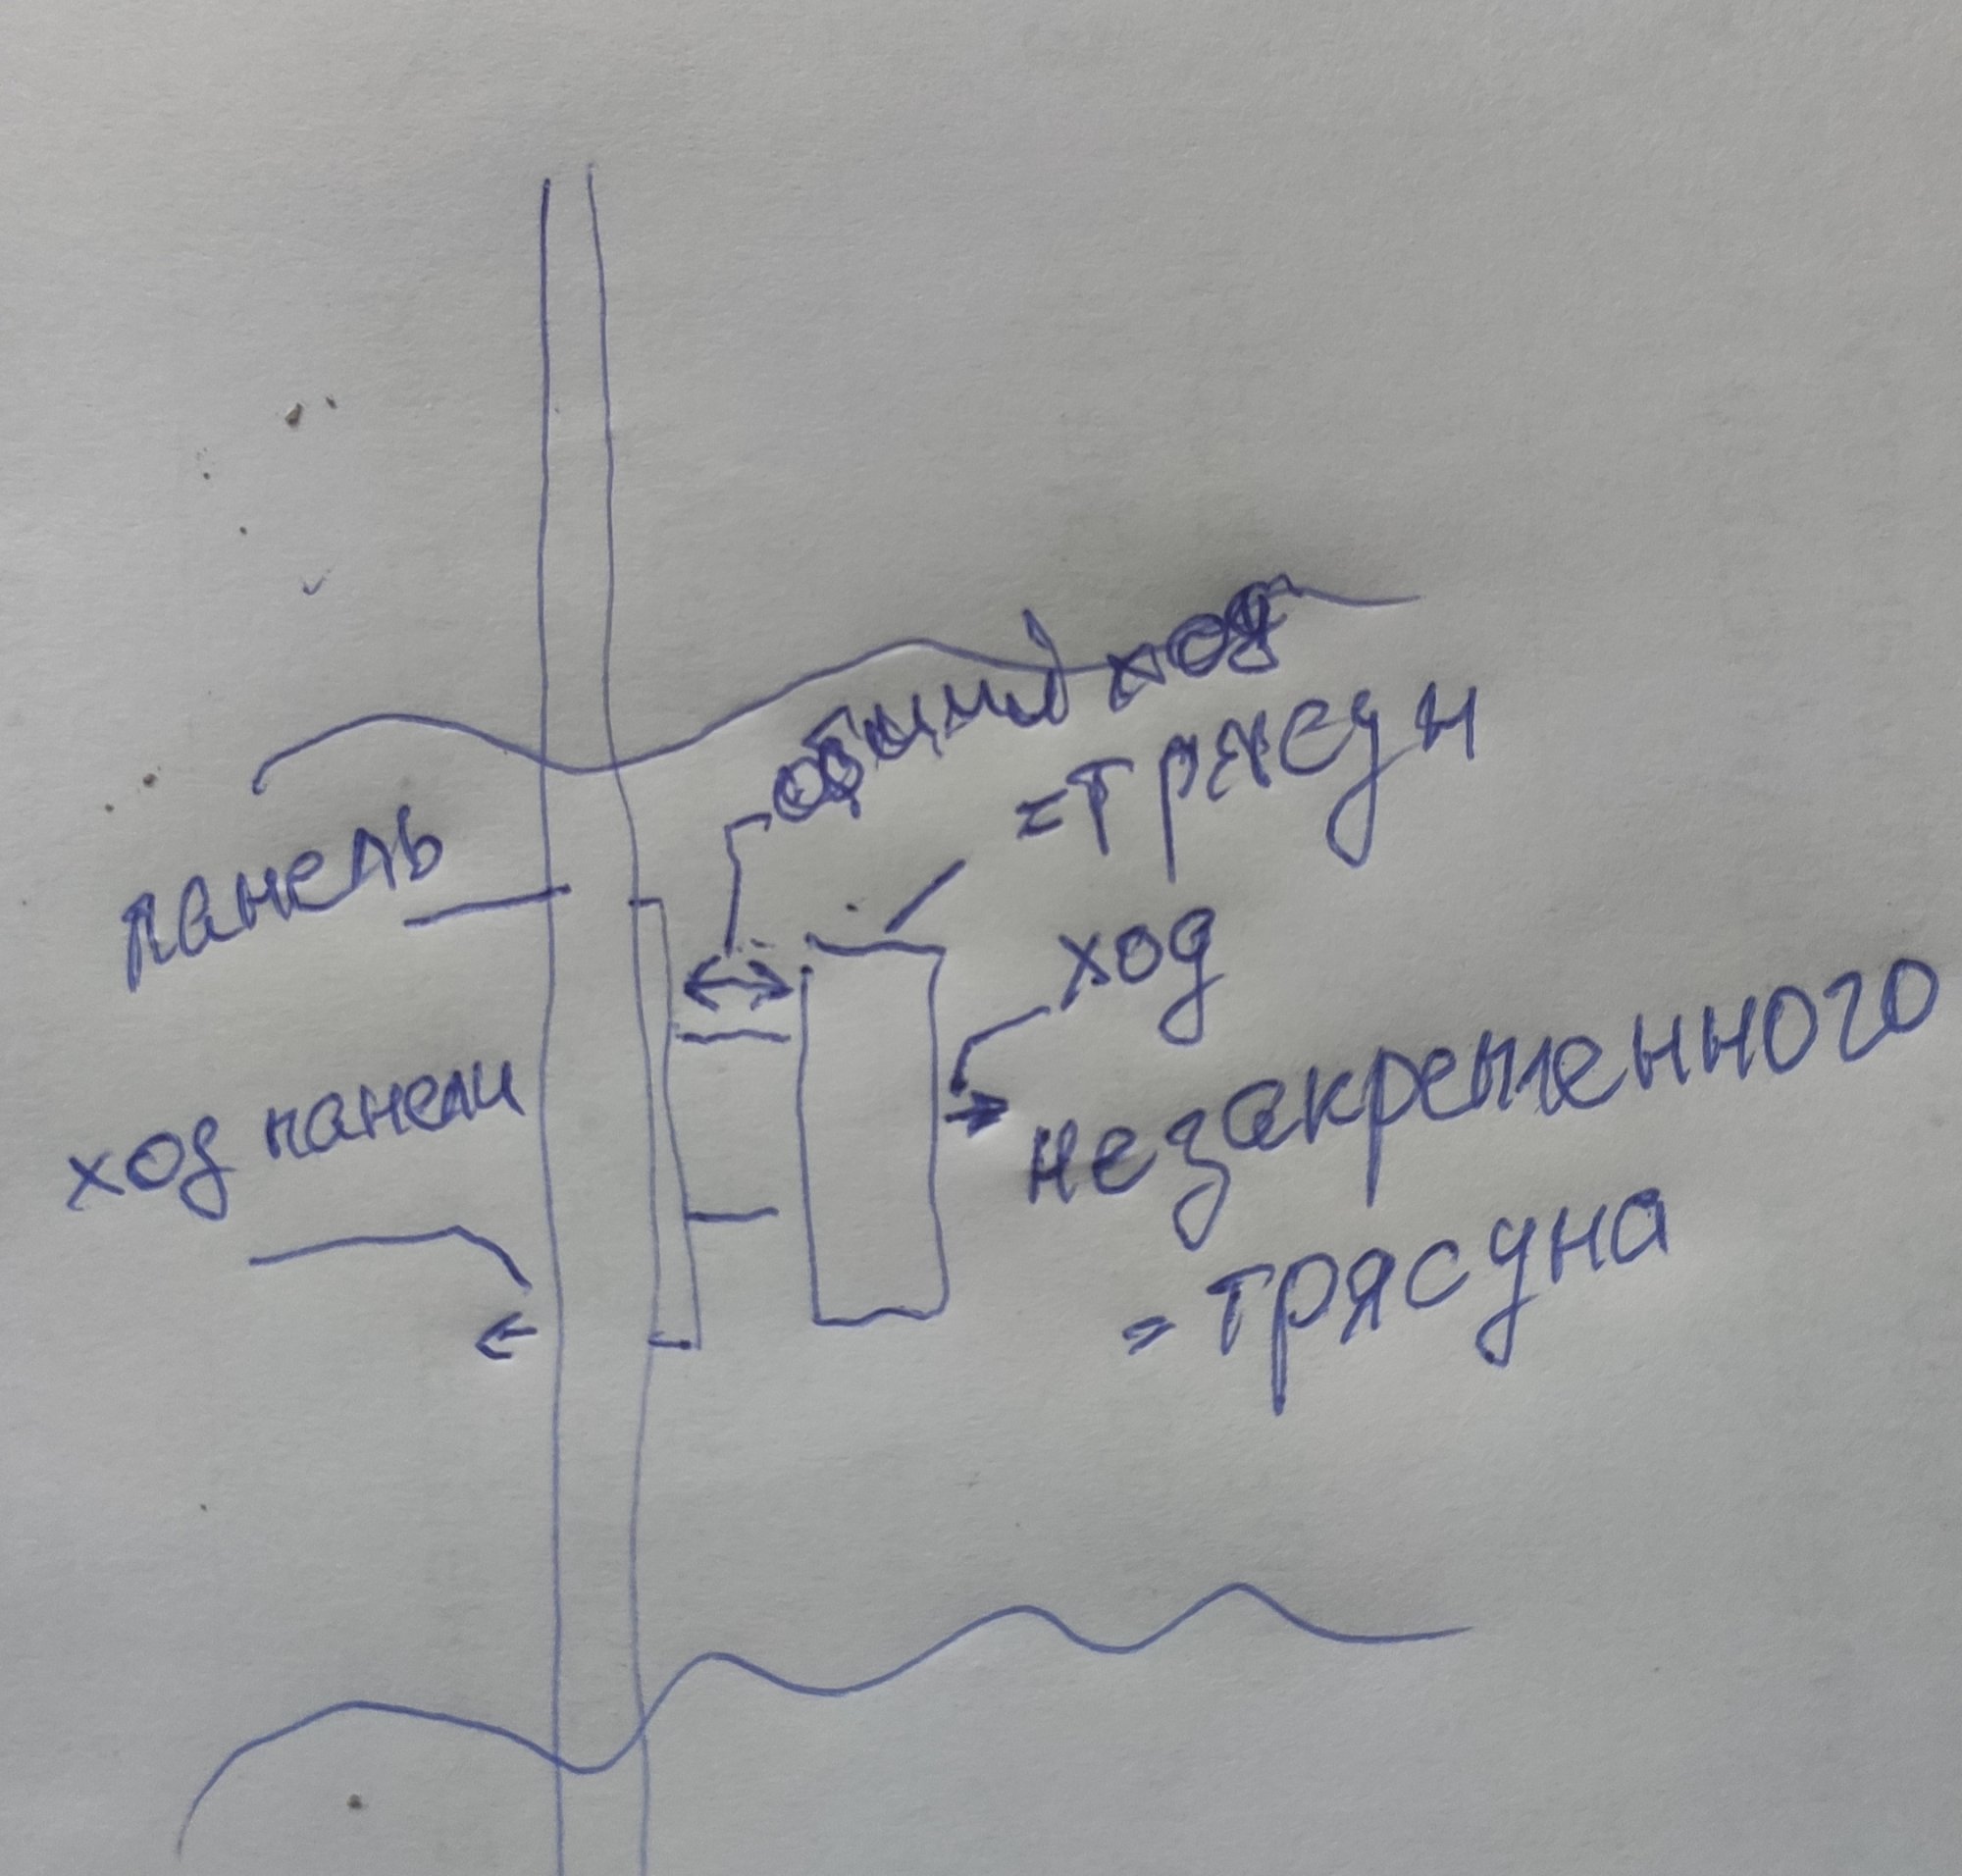 общий ход
= трясун
панель
ход
незакрепленного
= трясуна
ход панели